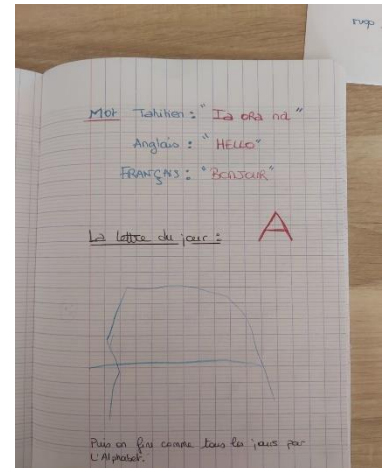 Mot Tahitien : "Ia ora na"
Anglais : "HELLO"
FRANÇAIS : "BONJOUR"
La lettre du jour : A
Puis on fini comme tous les jours par
L'Alphabet.